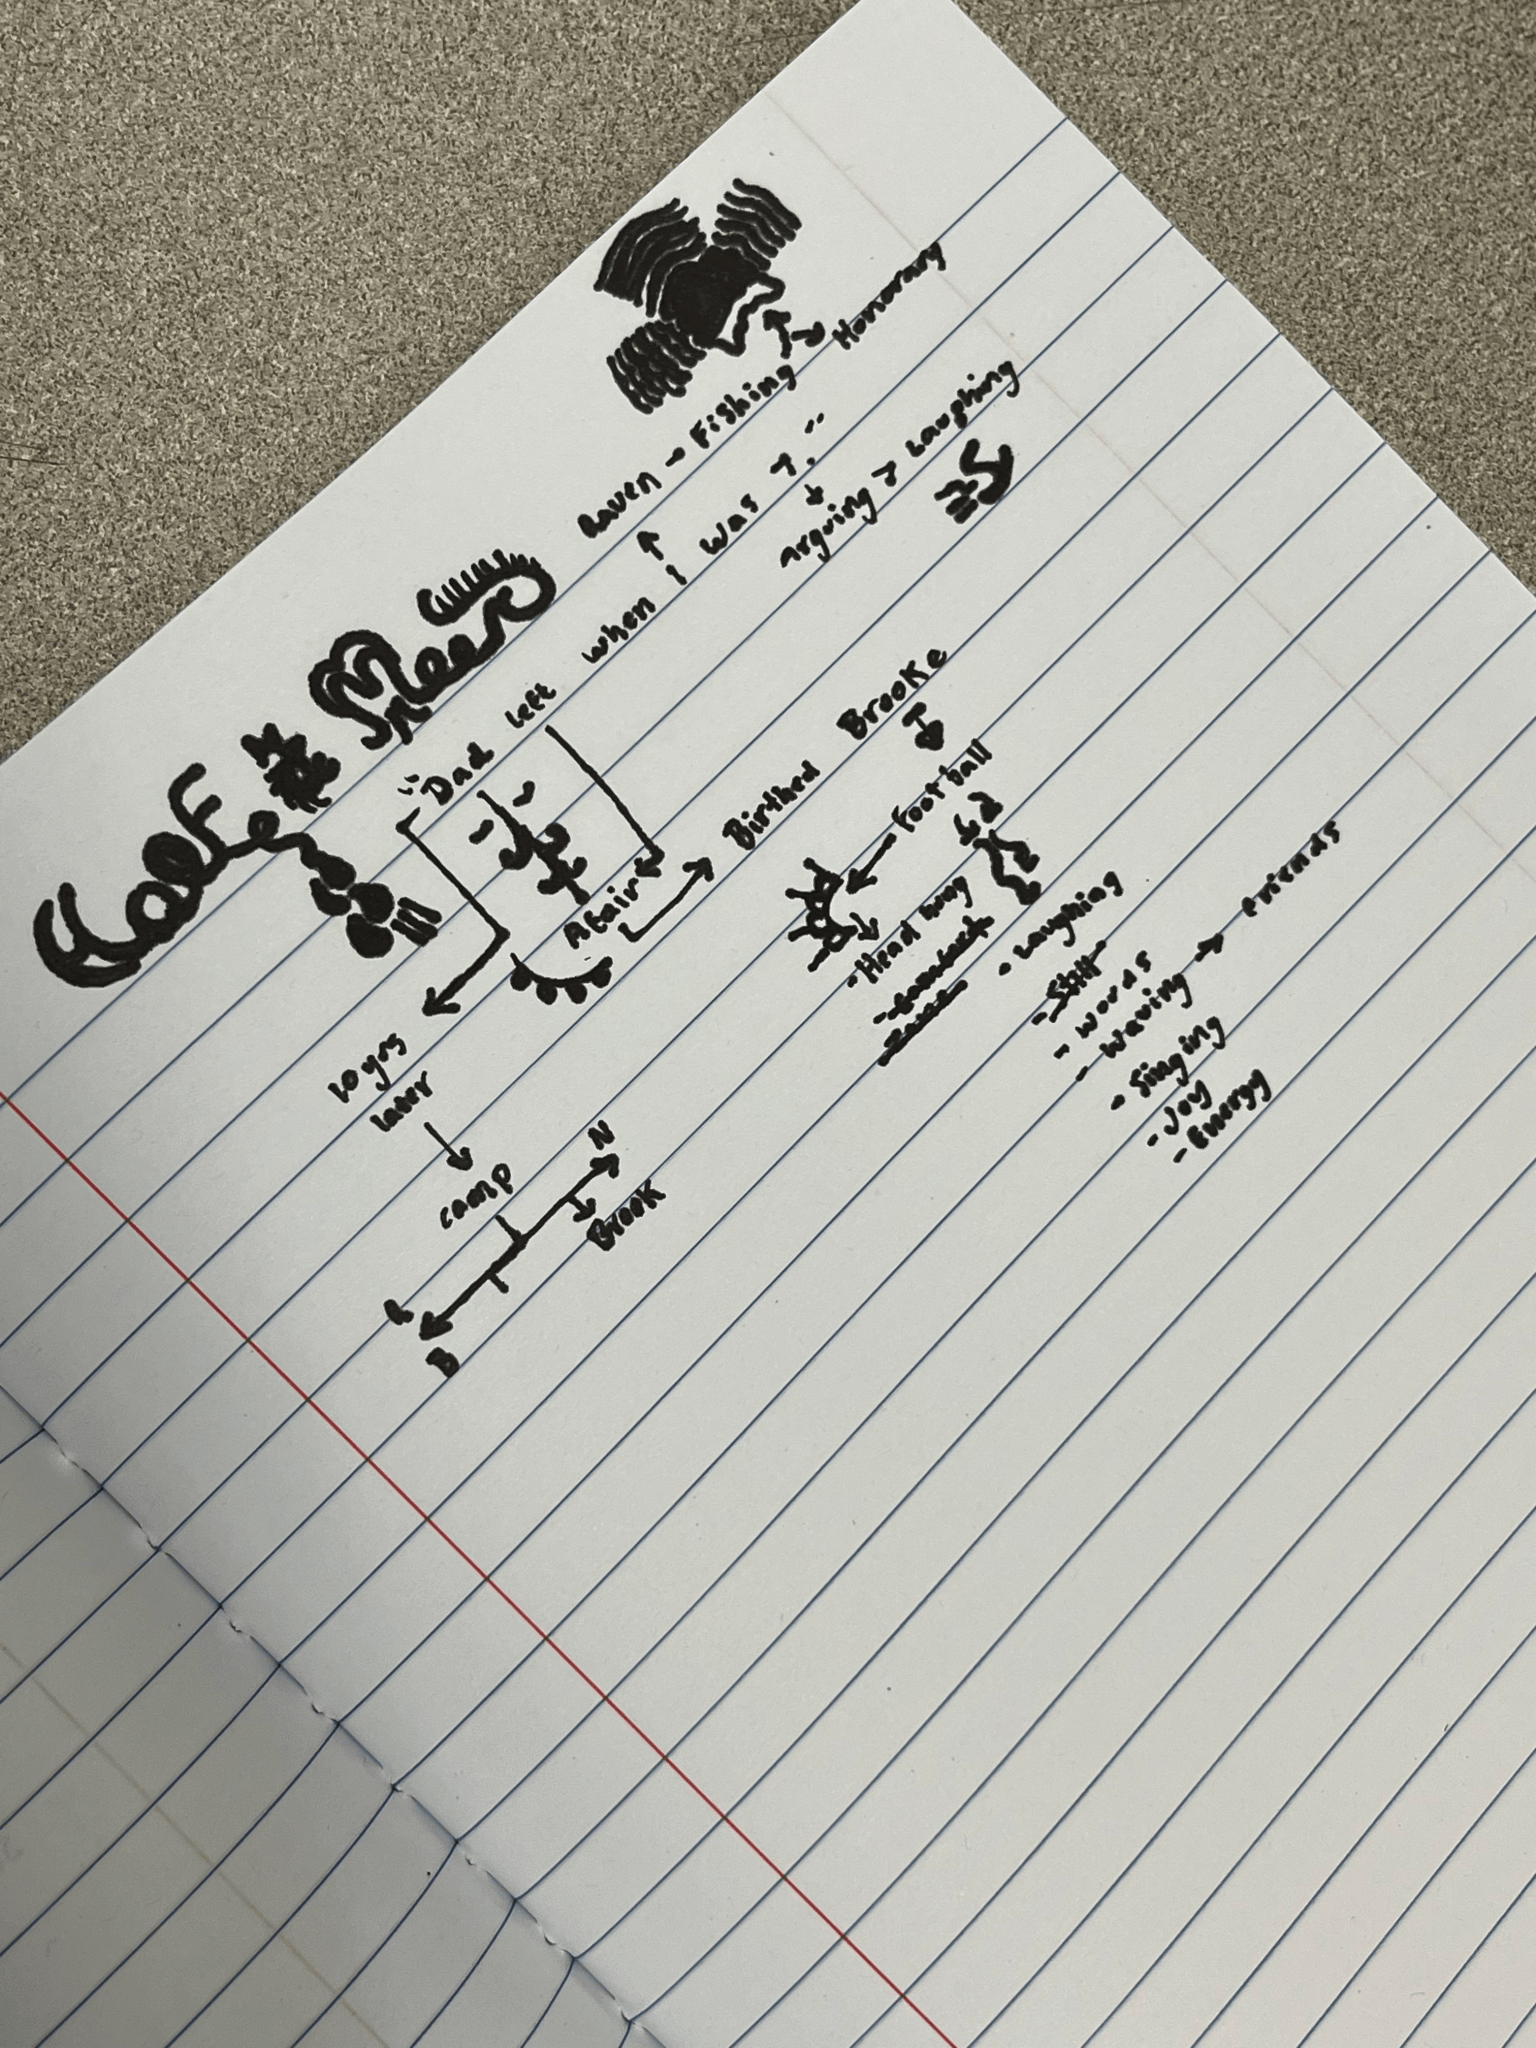 Half * Sheet
Raven - Fishing
Honorary
"Dad left when I was 7."
Arguing > Laughing
Afair
Birthed Brooke
Football
- Head hung
- Laughing
- Still
- words
- waving → Friends
- Singing
- Joy
- Energy
10 yrs
later
camp
N
Brook
R
B